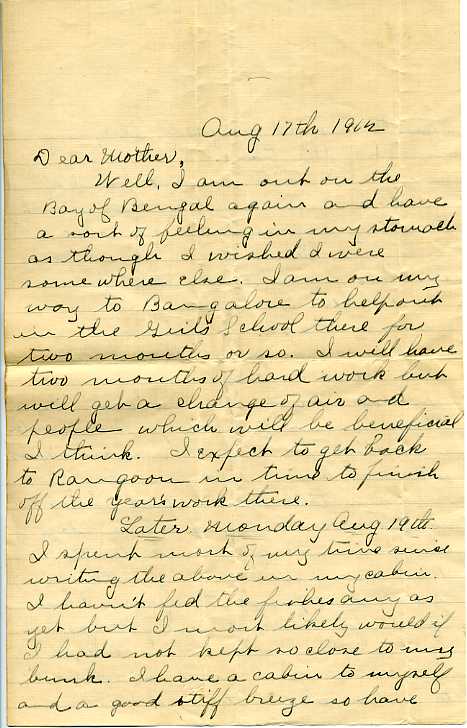 Aug 17th 1912
Dear Mother,
Well, I am out on the
Bay of Bengal again and have
a sort of feeling in my stomach
as though I wished I were
somewhere else. I am on my
way to Bangalore to help out
in the Girls School there for
two months or so. I will have
two months of hard work but
will get a change of air and
people which will be beneficial
I think. I expect to get back
to Rangoon in time to finish
off the year's work there.
Later. Monday Aug 19th
I spent most of my time since
writing the above in my cabin.
I havn't fed the fishes any as
yet but I most likely would if
I had not kept so close to my
bunk. I have a cabin to myself
and a good stiff breeze so have